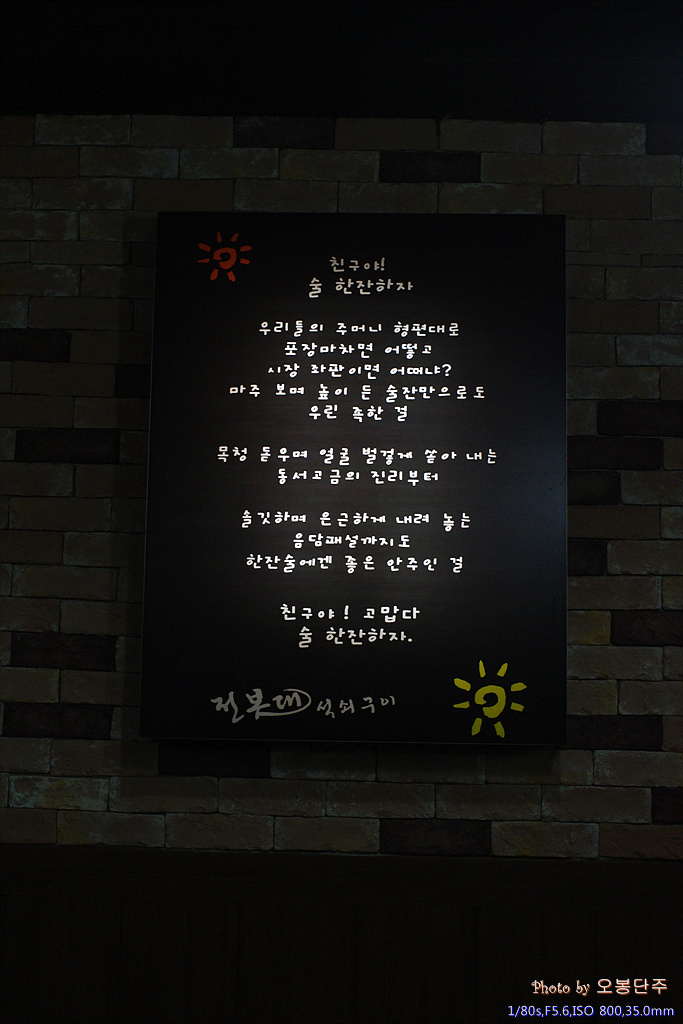 친구야!
술 한잔하자
우리들의 주머니 형편대로
포장마차면 어떻고
시장 좌판이면 어떠냐?
마주 보며 높이 든 술잔만으로도
우린 족한 걸
목청 돋우며 얼굴 벌겋게 쏟아 내는
동서고금의 진리부터
솔깃하며 은근하게 내려 놓는
음담패설까지도
한잔술에겐 좋은 안주인 걸
친구야! 고맙다
술 한잔하자.
전봇대 석쇠구이
Photo by 오봉단주
1/80s,F5.6,ISO 800,35.0mm